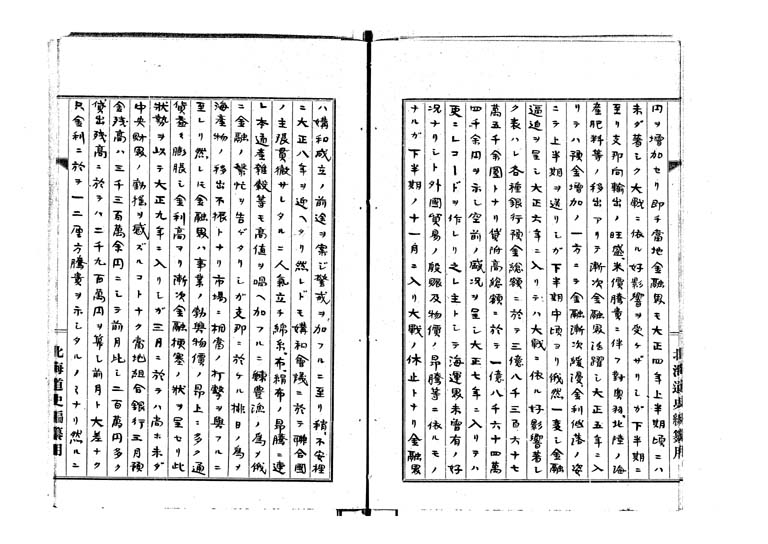 円ヲ増加セリ即チ当地金融界モ大正四年上半期頃ニハ
未ダ著シク大戦ニ依ル好影響ヲ受ケザリシガ下半期ニ
至リ支那向輸出ノ旺盛、米價騰貴ニ伴フ對奥羽、北陸ノ海
産肥料等ノ移出アリテ漸次金融界活躍シ大正五年ニ入
リテハ預金増加ノ一方ニテ金融漸次緩漫金利低落ノ姿
ニテ上半期ヲ送リシガ下半期中頃ヨリ俄然一変シ金融
逼迫ヲ呈シ大正六年ニ入リテハ大戦ニ依ル好影響著シ
ク表ハレ各種銀行預金総額ニ於テ三億八千三百六十七
萬五千余圓トナリ貸附高総額ニ於テ一億八千六十四萬
四千余円ヲ示シ空前ノ盛況ヲ呈シ大正七年ニ入リテハ
更ニレコードヲ作レリ之レ主トシテ海運界未曽有ノ好
況ナリシト外國貿易ノ殷賑及物價ノ昂騰等ニ依ルモノ
ナルガ下半期ノ十一月ニ入リ大戦ノ休止トナリ金融界
北海道史編纂用
ハ媾和成立ノ前途ヲ案ジ警戒ヲ加フルニ至リ稍、不安裡
ニ大正八年ヲ迎ヘタリ然レドモ媾和會議ニ於テ聯合國
ノ主張貫徹サレタルニ人氣立チ綿糸、布、絹布ノ昂騰ニ連
レ本道産雑穀等モ高値ヲ唱ヘ加フルニ鰊豊漁ノ為メ俄
ニ金融ノ繁忙ヲ告ゲタリシガ支那ニ於ケル排日ノ為メ
海産物ノ移出不振トナリ市場ニ相当ノ打撃ヲ與フルニ
至レリ然レドモ金融界ハ事業ノ勃興物價ノ昂上ニ多ク通
貨蓄モ膨脹シ金利高マリ漸次金融梗塞ノ状ヲ呈セリ此
状勢ヲ以テ大正九年ニ入リシガ三月ニ於テハ尚ホ未ダ
中央財界ノ動揺ヲ感ズルコトナク当地組合銀行三月預
金残高ハ三千三百萬余円ニシテ前月比シ二百萬円多ク
貸出残高ニ於テハ二千九百萬円ヲ算シ前月ト大差ナク
只金利ニ於テ一二厘方騰貴ヲ示シタルノミナリ然ルニ
北海道史編纂用